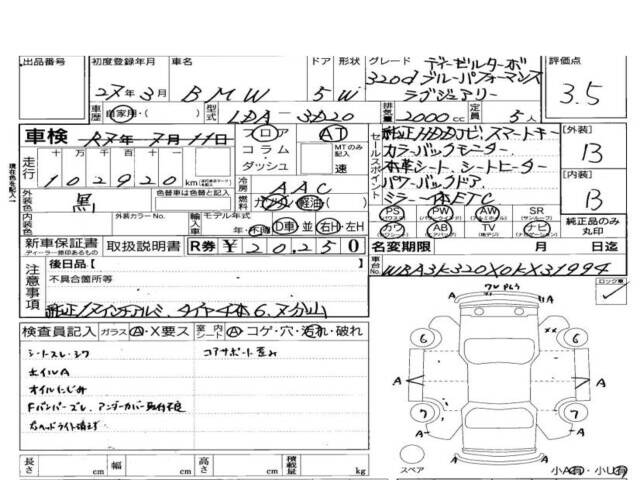 出品番号 初度登録年月 車名 ドア 形状 グレード ディーゼルターボ 評価点
27年3月 BMW 5W 320d ブルーパフォーマンス
ラグジュアリー 3.5
車歴 自家用・( ) 型式 LDA-3D20 排気量 2000cc 定員 5人
車検 年7月11日 フロア AT
セールスポイント 純正HDDナビ、スマートキー
カラーバックモニター
本革シート、シートヒーター
パワーバックドア
ミラー一体ETC
[外装] B
[内装] B
コラム MTのみ記入
ダッシュ 速
走行 十万 万 千 百 十
102920 km
冷房 AAC
燃料 ガソリン 軽油 ( )
外装色 黒 色替車は色替と記入
内装色 外装カラーNo. 輸入車 モデル年式 年・不博 D車・並 右H・左H
PS (パワステ) PW (パワーウィンド) AW (アルミホイール) SR (サンルーフ) 純正品のみ○印
カワ AB TV ナビ
新車保証書 ディーラー捺印あるもの 取扱説明書 R券 ¥20,250 名変期限 月 日迄
注意事項 後日品[ ] 車台No. WBA3K320X0KX31994
不具合箇所等
ロック車
検査員記入 ガラス A・X要ス 室内シート A・コゲ・穴・汚れ・破れ
シートスレ・シワ コアサポート歪み
ホイルA
オイルにじみ
Fバンパーズレ、アンダーカバー取付不良
右ヘッドライト
6 6
A A A
7 7
A
スペア
小A有・小U有
長さ cm 幅 cm 高さ cm 積載量 kg